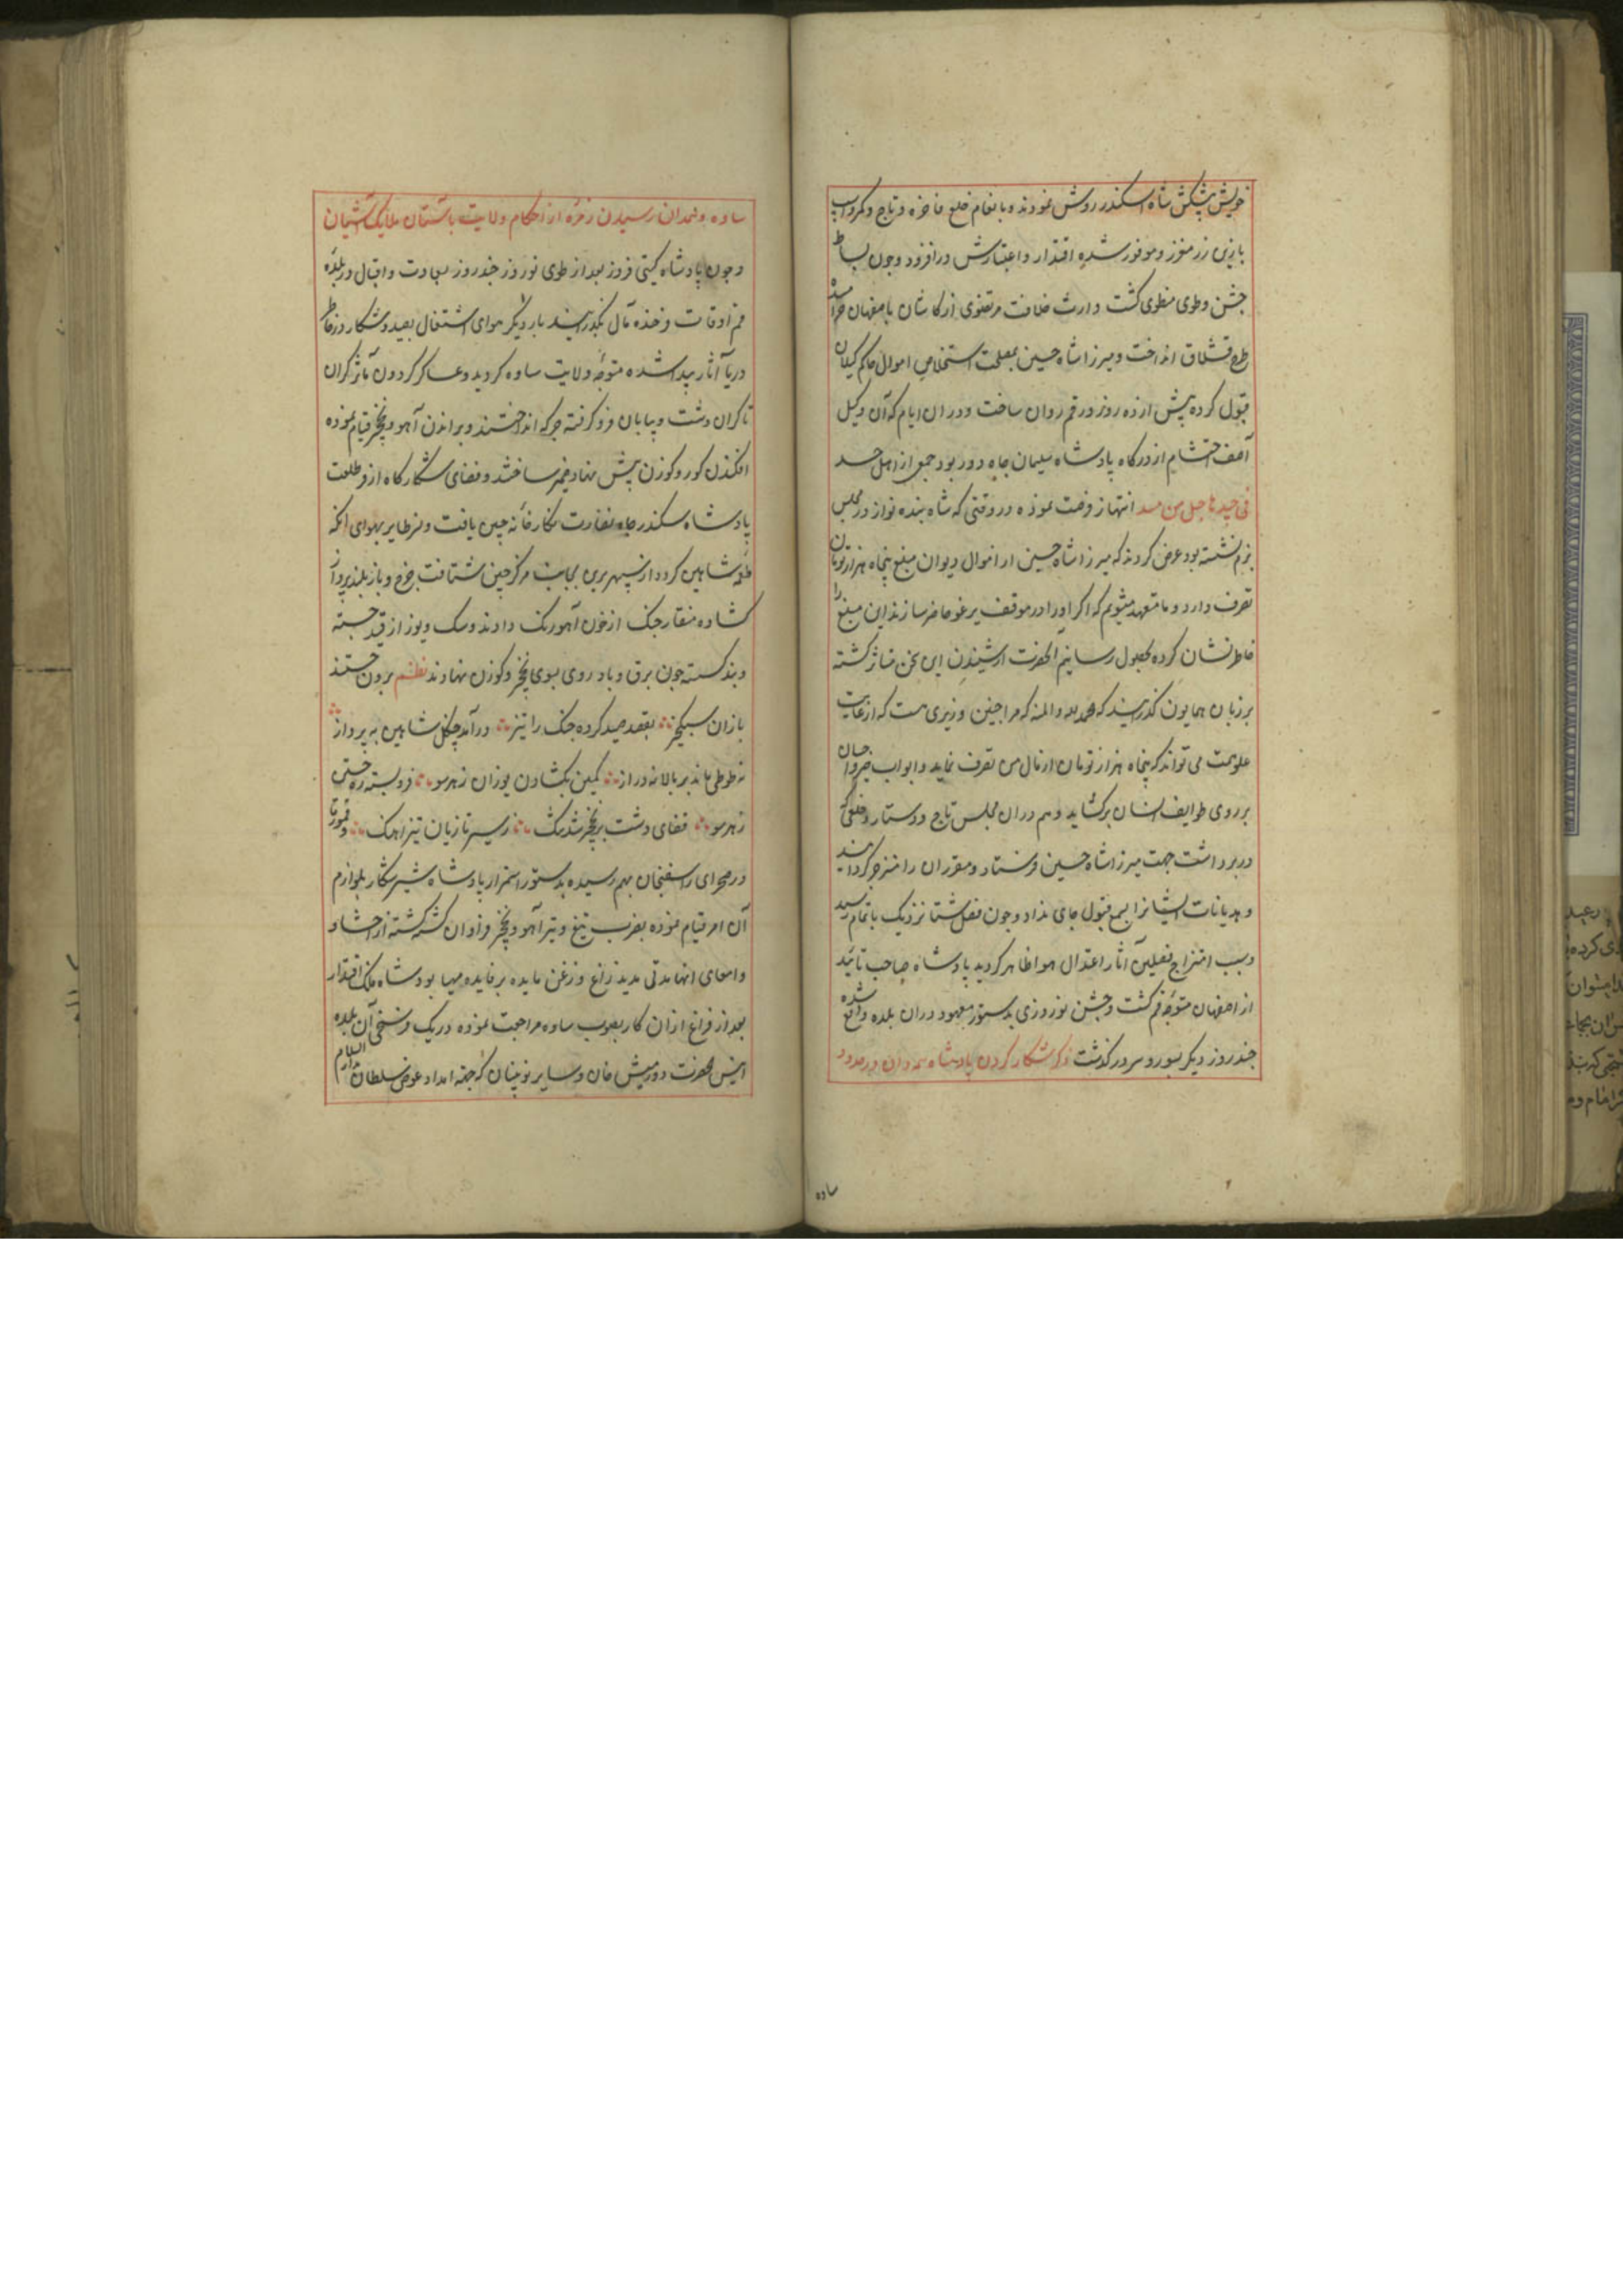 خویش پیشکش شاه اسکندر روش نمودند و بانعام خلع فاخره و تاج و کمر و اسب
با زین زر مفوز و موفور شده اقتدار و اعتبارش درافزود و چون بساط
جشن و طوی منطوی گشت وارث خلافت مرتضوی از کاشان باصفهان
طرح قشلاق انداخت و میرزا شاه حسین بمصلحت استخلاص اموال حاکم گیلان
قبول کرده پیش از ده روز در قم روان ساخت و در ان ایام که آن وکیل
آصف احتشام از درگاه پادشاه سلیمان جاه دور بود جمعی از اهل حسد
فی جیدها حبل من مسد انتهاز فرصت نموده در وقتی که شاه بنده نواز در مجلس
بزم نشسته بود عرض کردند که میرزا شاه حسین از اموال دیوان مبلغ پنجاه هزار تومان
تصرف دارد و ما متعهد میشویم که اکر او را در موقف یرغو حاضر سازند این مبلغ را
خاطرنشان کرده بحصول رسانیم آنحضرت از شنیدن این سخن متاثر کشته
بر زبان همایون کذرانید که الحمد لله والمنه که مرا چنین وزیری هست که از غایت
علو همت می تواند که پنجاه هزار تومان از مال من تصرف نماید و ابواب
بر روی طوایف انسان برکشاید و هم در ان مجلس تاج و دستار و خلعتی که
در بر داشت جهت میرزا شاه حسین فرستاد و مقرران را منزجر کردانید
و هدیانات ایشانرا بسمع قبول جای نداد و چون فصل شتا نزدیک باتمام رسید
و بسبب امتزاج فصلین آثار اعتدال هوا ظاهر کردید پادشاه صاحب تائید
از اصفهان متوجه قم کشت و جشن نوروزی بدستور معهود در ان بلده واقع شده
چند روز دیکر بسور و سرور کذشت ذکر شکار کردن پادشاه
ساده
ساوه و همدان رسیدن زمره از حکام ولایت باستان ملایک آشیان
و چون پادشاه کیتی فروز بعد از طوی نوروز چند روز بسعادت و اقبال در بلده
قم اوقات فرخنده مآل بکذرانید بار دیکر هوای اشتغال بصید و شکار در خاطر
دریا آثار پیدا شده متوجه ولایت ساوه کردید و عساکر کردون مآثر کران
تا کران دشت و بیابان فرو کرفته جرکه انداختند و براندن آهو و نخجیر قیام نموده
افکندن کور و کوزن پیش نهاد ضمیر ساختند و فضای شکارکاه از فر طلعت
پادشاه سکندر جاه نضارت نکارخانه چین یافت و نسر طایر بهوای انکه
طعمه شاهین کردد از سپهر برین بجانب مرکز چین شتافت چرخ و باز بلند پرواز
کشاده منقار چنک از خون آهو رنک دادند و سک و یوز از قید جسته
و بند کسسته چون برق و باد روی بسوی نخجیر و کوزن نهادند نظم برون جستند
بازان سبکخیز بقصد صید کرده چنک را تیز درآمد چنکل شاهین به پرواز
نه طوطی ماند بر بالا نه دراز کمین بکشادن یوزان ز هر سو فرو بسته ره جستن
ز هر سو فضای دشت بر نخجیر شد تنک ز سیر تازیان تیز آهنک و
در صحرای راسفنجان بهم رسیده بدستور استمرار پادشاه شیر شکار بلوازم
آن امر قیام نموده بضرب تیغ و تیر آهو و نخجیر فراوان کشته کشته از احشا و
و امعای انها مدتی مدید زاغ و زغن مایده بر فایده مهیا بود و شاه فلک اقتدار
بعد از فراغ از ان کار بصوب ساوه مراجعت نموده در یک فرسخی آن بلده
انیس الحضرت دورمیش خان و سایر نوینان که بجهة امداد عوض سلطان